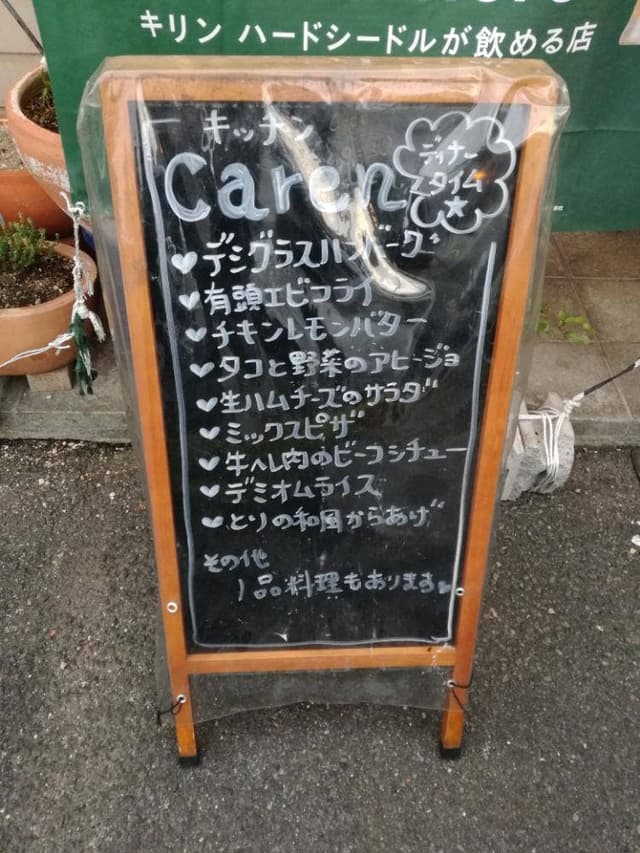 キリン ハードシードルが飲める店
キッチン
Caren
ディナー
タイム
★
♥デミグラスハンバーグ
♥有頭エビフライ
♥チキンレモンバター
♥タコと野菜のアヒージョ
♥生ハムチーズのサラダ
♥ミックスピザ
♥牛ヘレ肉のビーフシチュー
♥デミオムライス
♥とりの和風からあげ
その他
1品料理もあります♥